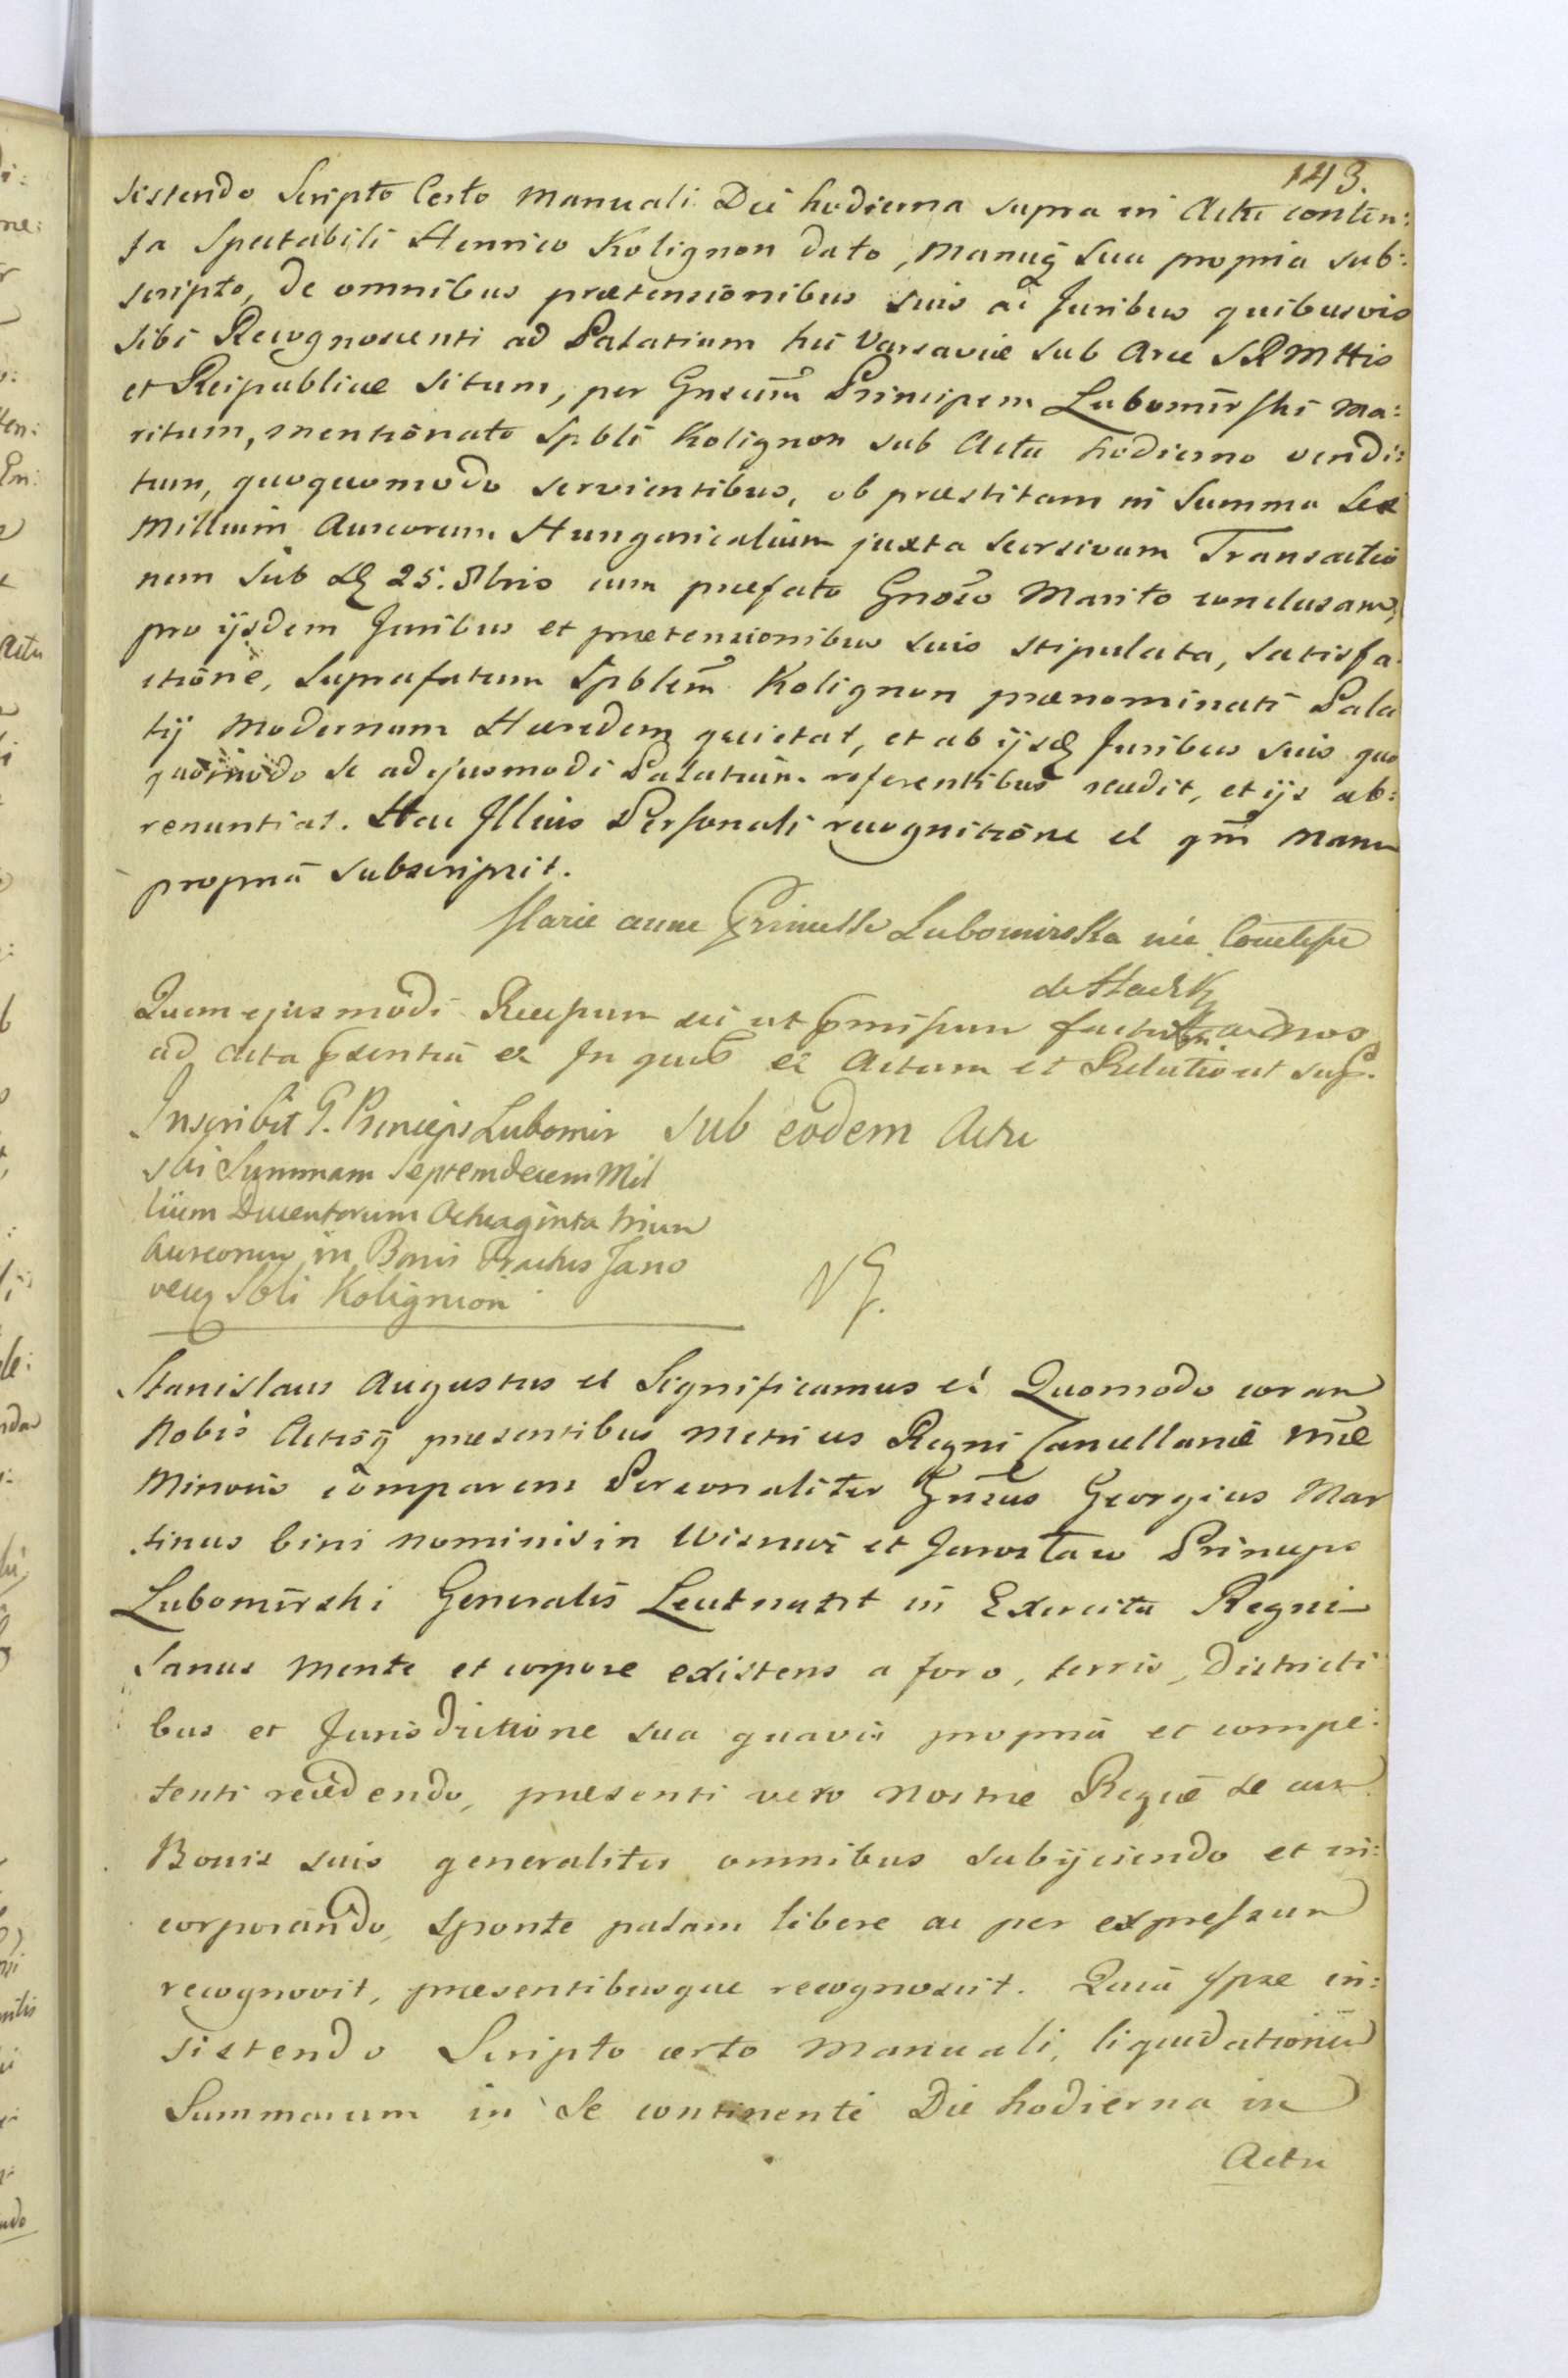 143.
sistendo Scripto Certo Manuali Die hodierna supra in Actu conten:
ta Spectabili Henrico Kolignon dato, Manuq sua propria sub:
scripto, de omnibus prætensionibus suis ac Juribus quibusvis
sibi Recognoscenti ad Palatium hic Varsaviæ sub Arce SRMttis
et Reipublicæ situm, per Gnsum Principem Lubomirski Ma:
ritum, mentionato Spbli Kolignon sub Actu hodierno vendi:
tum, quoquomodo servientibus, ob præstitam in Summa Sex
Millium Aureorum Hungaricalium juxta scorsivam Transactio
nem sub 25. 8bris cum præfato Gnoso Marito conclusam,
pro ijsdem Juribus et prætensionibus suis stipulata, satisfa
ctione, Suprafatum Spblem Kolignon prænominati Pala
tij Modernum Hæredem quietat, et ab ijsdq Juribus suis quo
quomodo se ad ejusmodi Palatium referentibus recedit, et ijs ab:
renuntiat. Hac Illius Personali recognitione et qm Manu
propria subscripsit.
Marie anne Princesse Lubomirska née Comtesse
de Hadik
Quem ejusmodi ut ad nos
ad Acta In et Actum et Relatio ut sup.
Inscribit G. Princeps Lubomir
ski Summam Septemdecem Mil
lium Ducentorum Octuaginta trium
Aureorum in Bonis Tractus Jano
veq Sbli Kolignion
Sub eodem Actu
NG.
Stanislaus Augustus et Significamus et Quomodo coram
Nobis Actisq præsentibus Metrices Regni Cancellariæ nræ
Minoris comparens Personaliter Gnsus Georgius Mar
tinus bini nominis in Wisnicz et Jarosław Princeps
Lubomirski Generalis Leutnant in Exercitu Regni
Sanus mente et corpore existens a foro, terris, Districti
bus et Jurisdictione sua quavis propria et compe:
tenti recedendo, præsenti vero nostræ Regiæ se cum
Bonis suis generaliter omnibus subijciendo et in:
corporando, sponte palam libere ac per expressum
recognovit, præsentibusque recognoscit. Quia Ipse in:
sistendo Scripto certo Manuali, liquidationem
Summarum in se continenti Die hodierna in
Actu